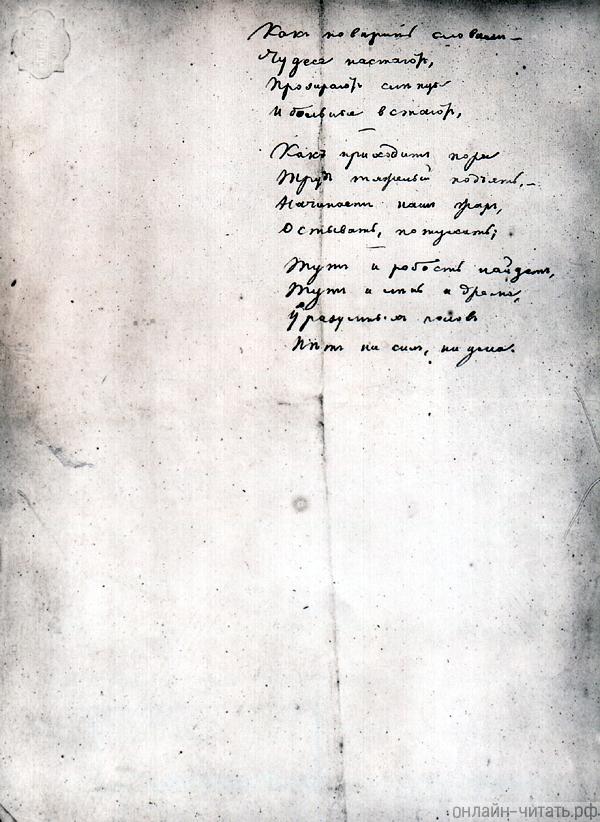 Какъ повѣришь словамъ —
Чудеса настаютъ,
Прозираютъ слѣпцы
И больные встаютъ,
Какъ приходитъ пора
Трудъ тяжелый подъять, —
Начинаетъ нашъ жаръ,
Остывать, потухать;
Тутъ и робость найдетъ,
Тутъ и лѣнь и дрема,
У разумныхъ головъ
Нѣтъ ни силъ, ни ума.
онлайн-читать.рф